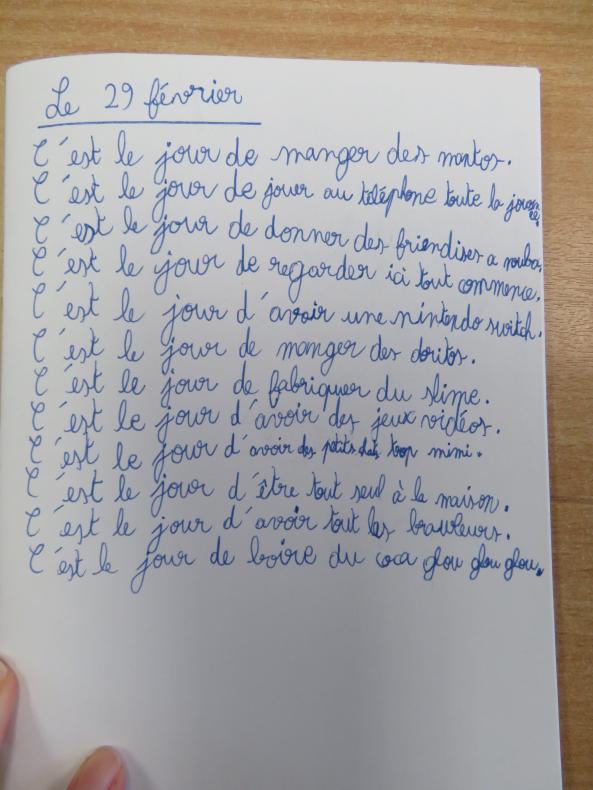 Le 29 février
C'est le jour de manger des mantos.
C'est le jour de jouer au téléphone toute la journée.
C'est le jour de donner des friendises a nouba.
C'est le jour de regarder ici tout commence.
C'est le jour d'avoir une nintendo switch.
C'est le jour de manger des doritos.
C'est le jour de fabriquer du slime.
C'est le jour d'avoir des jeux vidéos.
C'est le jour d'avoir des petits chats toop mimi.
C'est le jour d'être tout seul à la maison.
C'est le jour d'avoir tout les brauleurs.
C'est le jour de boire du coca glou glou glou.